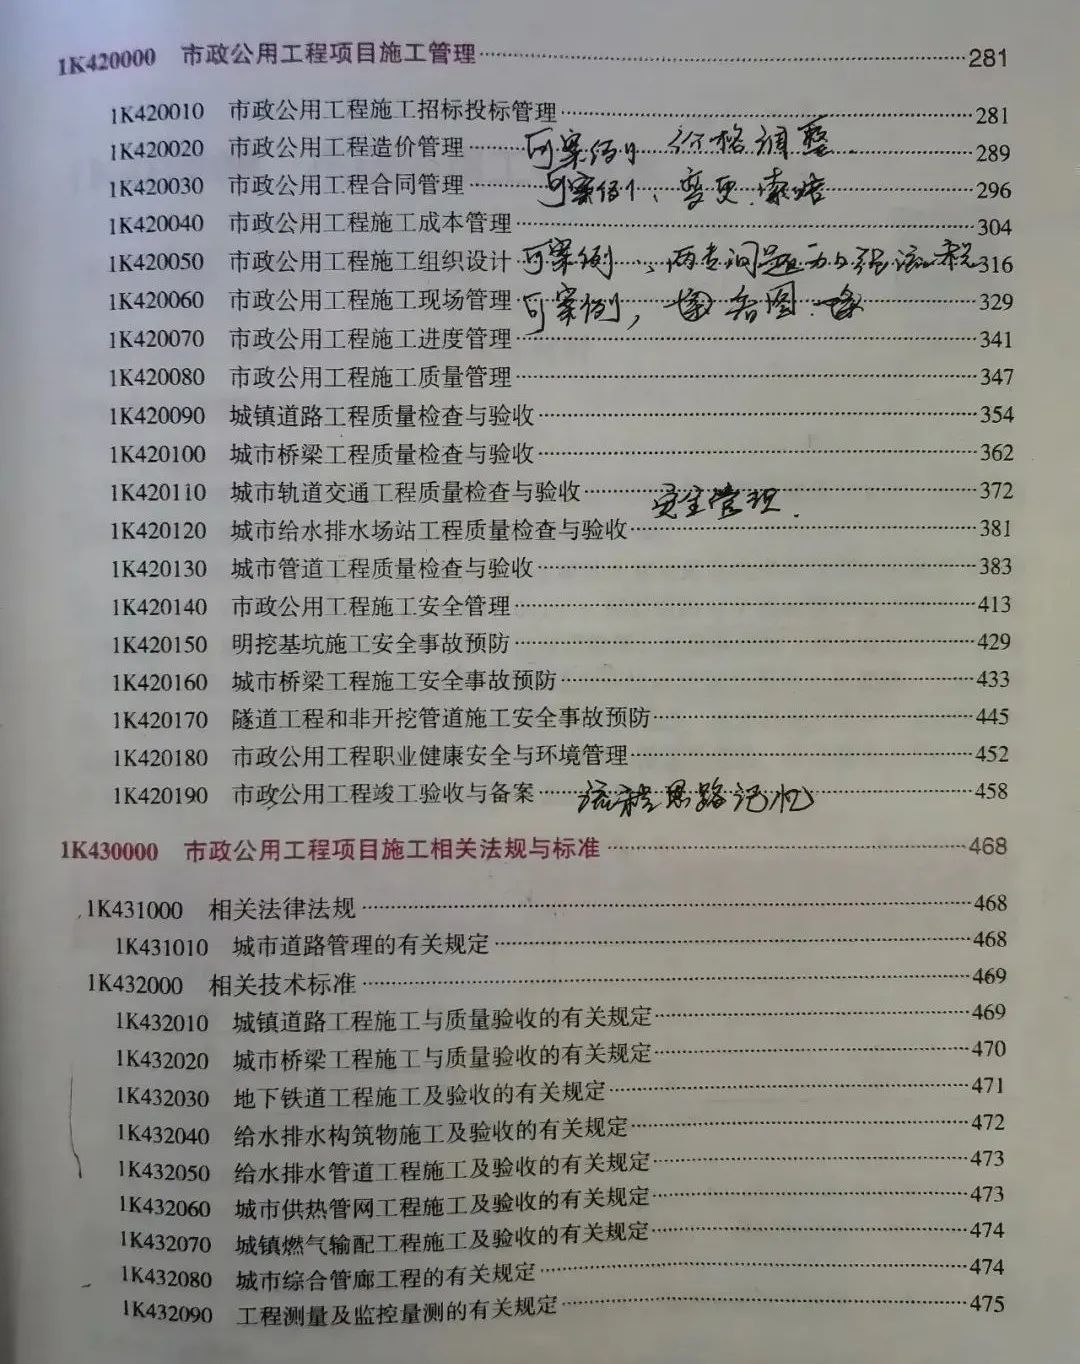 1K420000 市政公用工程项目施工管理 281
1K420010 市政公用工程施工招标投标管理 281
1K420020 市政公用工程造价管理 可案例 价格调整 289
1K420030 市政公用工程合同管理 可案例、变更、索赔 296
1K420040 市政公用工程施工成本管理 304
1K420050 市政公用工程施工组织设计 可案例 316
1K420060 市政公用工程施工现场管理 可案例, 329
1K420070 市政公用工程施工进度管理 341
1K420080 市政公用工程施工质量管理 347
1K420090 城镇道路工程质量检查与验收 354
1K420100 城市桥梁工程质量检查与验收 362
1K420110 城市轨道交通工程质量检查与验收 安全管理. 372
1K420120 城市给水排水场站工程质量检查与验收 381
1K420130 城市管道工程质量检查与验收 383
1K420140 市政公用工程施工安全管理 413
1K420150 明挖基坑施工安全事故预防 429
1K420160 城市桥梁工程施工安全事故预防 433
1K420170 隧道工程和非开挖管道施工安全事故预防 445
1K420180 市政公用工程职业健康安全与环境管理 452
1K420190 市政公用工程竣工验收与备案 流程思路记忆 458
1K430000 市政公用工程项目施工相关法规与标准 468
1K431000 相关法律法规 468
1K431010 城市道路管理的有关规定 468
1K432000 相关技术标准 469
1K432010 城镇道路工程施工与质量验收的有关规定 469
1K432020 城市桥梁工程施工与质量验收的有关规定 470
1K432030 地下铁道工程施工及验收的有关规定 471
1K432040 给水排水构筑物施工及验收的有关规定 472
1K432050 给水排水管道工程施工及验收的有关规定 473
1K432060 城市供热管网工程施工及验收的有关规定 473
1K432070 城镇燃气输配工程施工及验收的有关规定 474
1K432080 城市综合管廊工程的有关规定 474
1K432090 工程测量及监控量测的有关规定 475